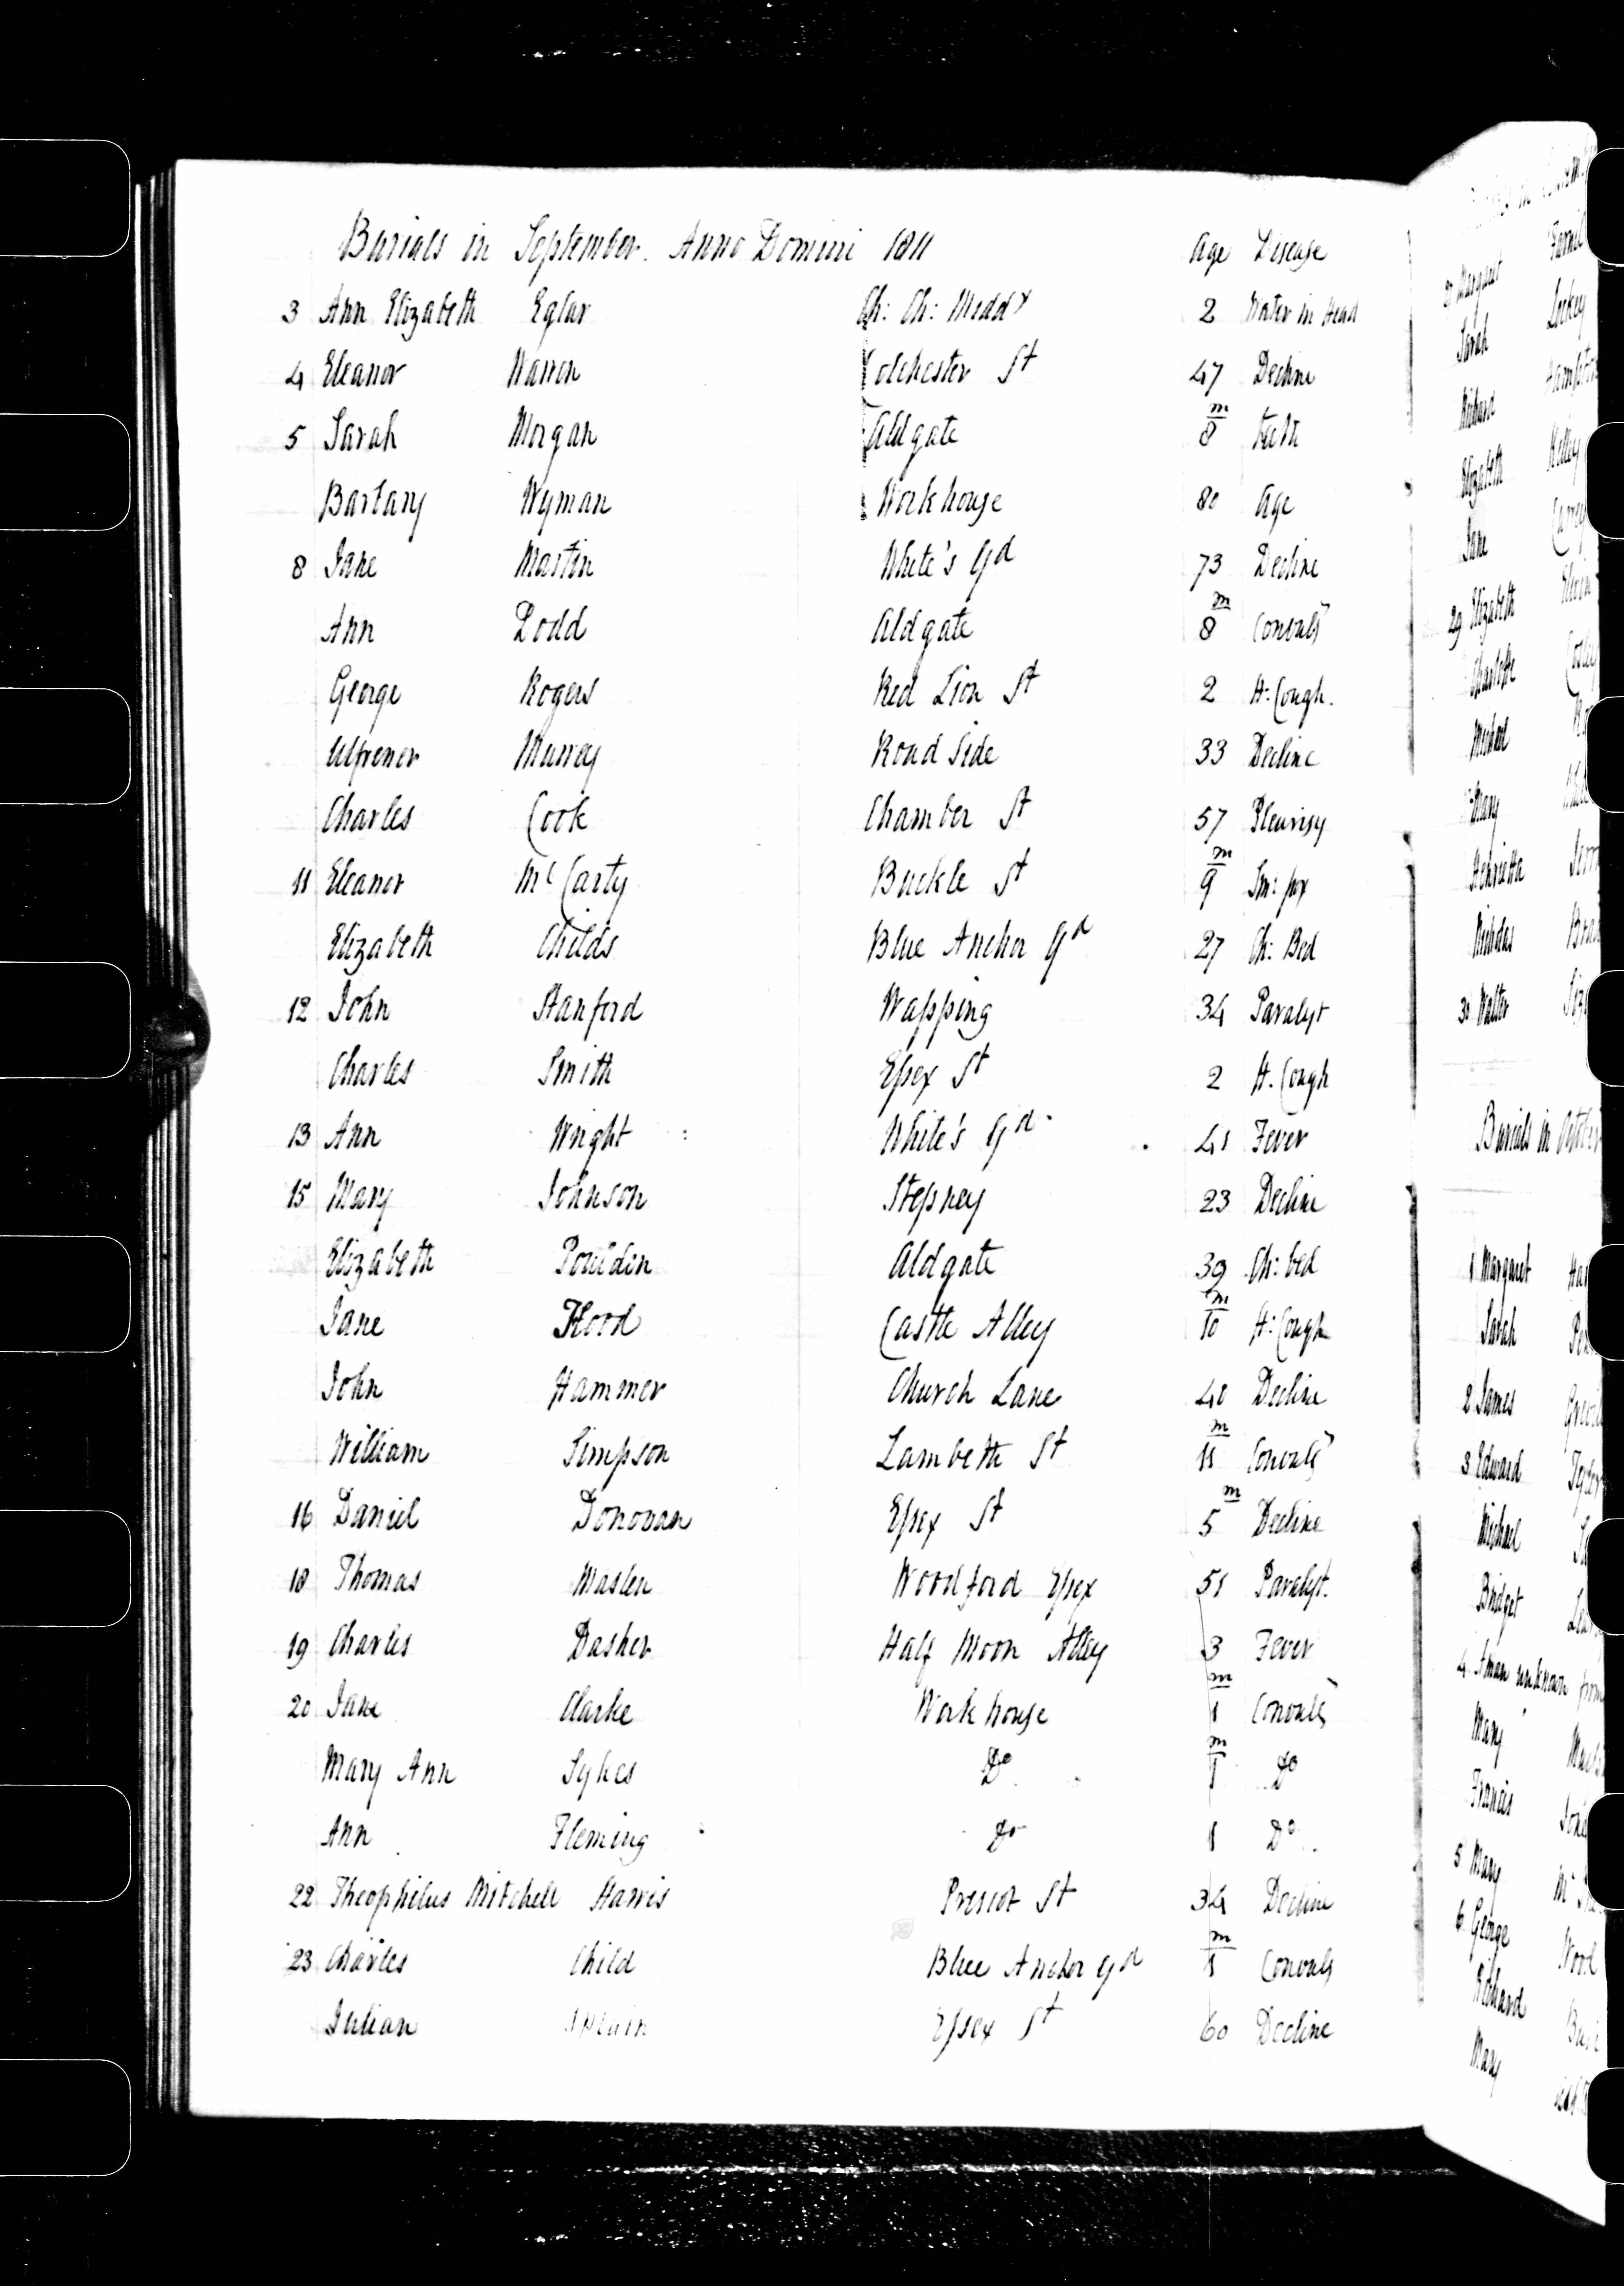 Burials in September. Anno Domini 1811 Age Disease
3 Ann Elizabeth Eglar Ch: Ch: Midd x 2 Water in Head
4 Eleanor Warren Colchester St 47 Decline
5 Sarah Morgan Aldgate 8 m Teeth
Barbary Wyman Workhouse 80 Age
8 Jane Martin White's Yd 73 Decline
Ann Dodd Aldgate 8 m Convuls
George Rogers Red Lion St 2 H: Cough.
Murrey Road Side 33 Decline
Charles Cook Chamber St 57 Pleurisy
11 Eleanor Mc Carty Buckle St 9 m Sm: pox
Elizabeth Childs Blue Anchor Yd 27 Ch: Bed
12 John Stanford Wapping 34 Paralyt
Charles Smith Essex St 2 H. Cough
13 Ann Wright White's Yd 41 Fever
15 Mary Johnson Stepney 23 Decline
Elizabeth Poulden Aldgate 39 Ch: bed
Jane Flood Castle Alley 10 m H: Cough
John Hammer Church Lane 40 Decline
William Simpson Lambeth St 11 m Convuls
16 Daniel Donovan Essex St 5 m Decline
18 Thomas Maslen Woodford Essex 51 Paralyt.
19 Charles Dasher Half Moon Alley 3 Fever
20 Jane Clarke Work house 1 m Convuls
Mary Ann Sykes Do 1 m Do
Ann Fleming Do 1 Do
22 Theophilus Mitchell Harris Prescot St 34 Decline
23 Charles Child Blue Anchor Yd 1 m Convuls
Julian Splain Essex St 60 Decline
27 Margaret
Sarah
Richard
Elizabeth Kelley
Jane
29 Elizabeth
Charlotte
Michael
Mary
Henrietta
Nicholas
30 Walter
Burials in October
1 Margaret
Sarah
2 James
3 Edward
Michael
Bridget
4 A man unknown from
Mary
Francis
5 Mary
6 George
Richard
Mary